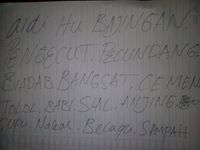 aldi Itu BAJINGAN.
PENGECUT. PECUNDANG
BIADAB BANGSAT. CEMEN
TOLOL. BABI. SIAL. ANJING
Belagu. SAMPAH